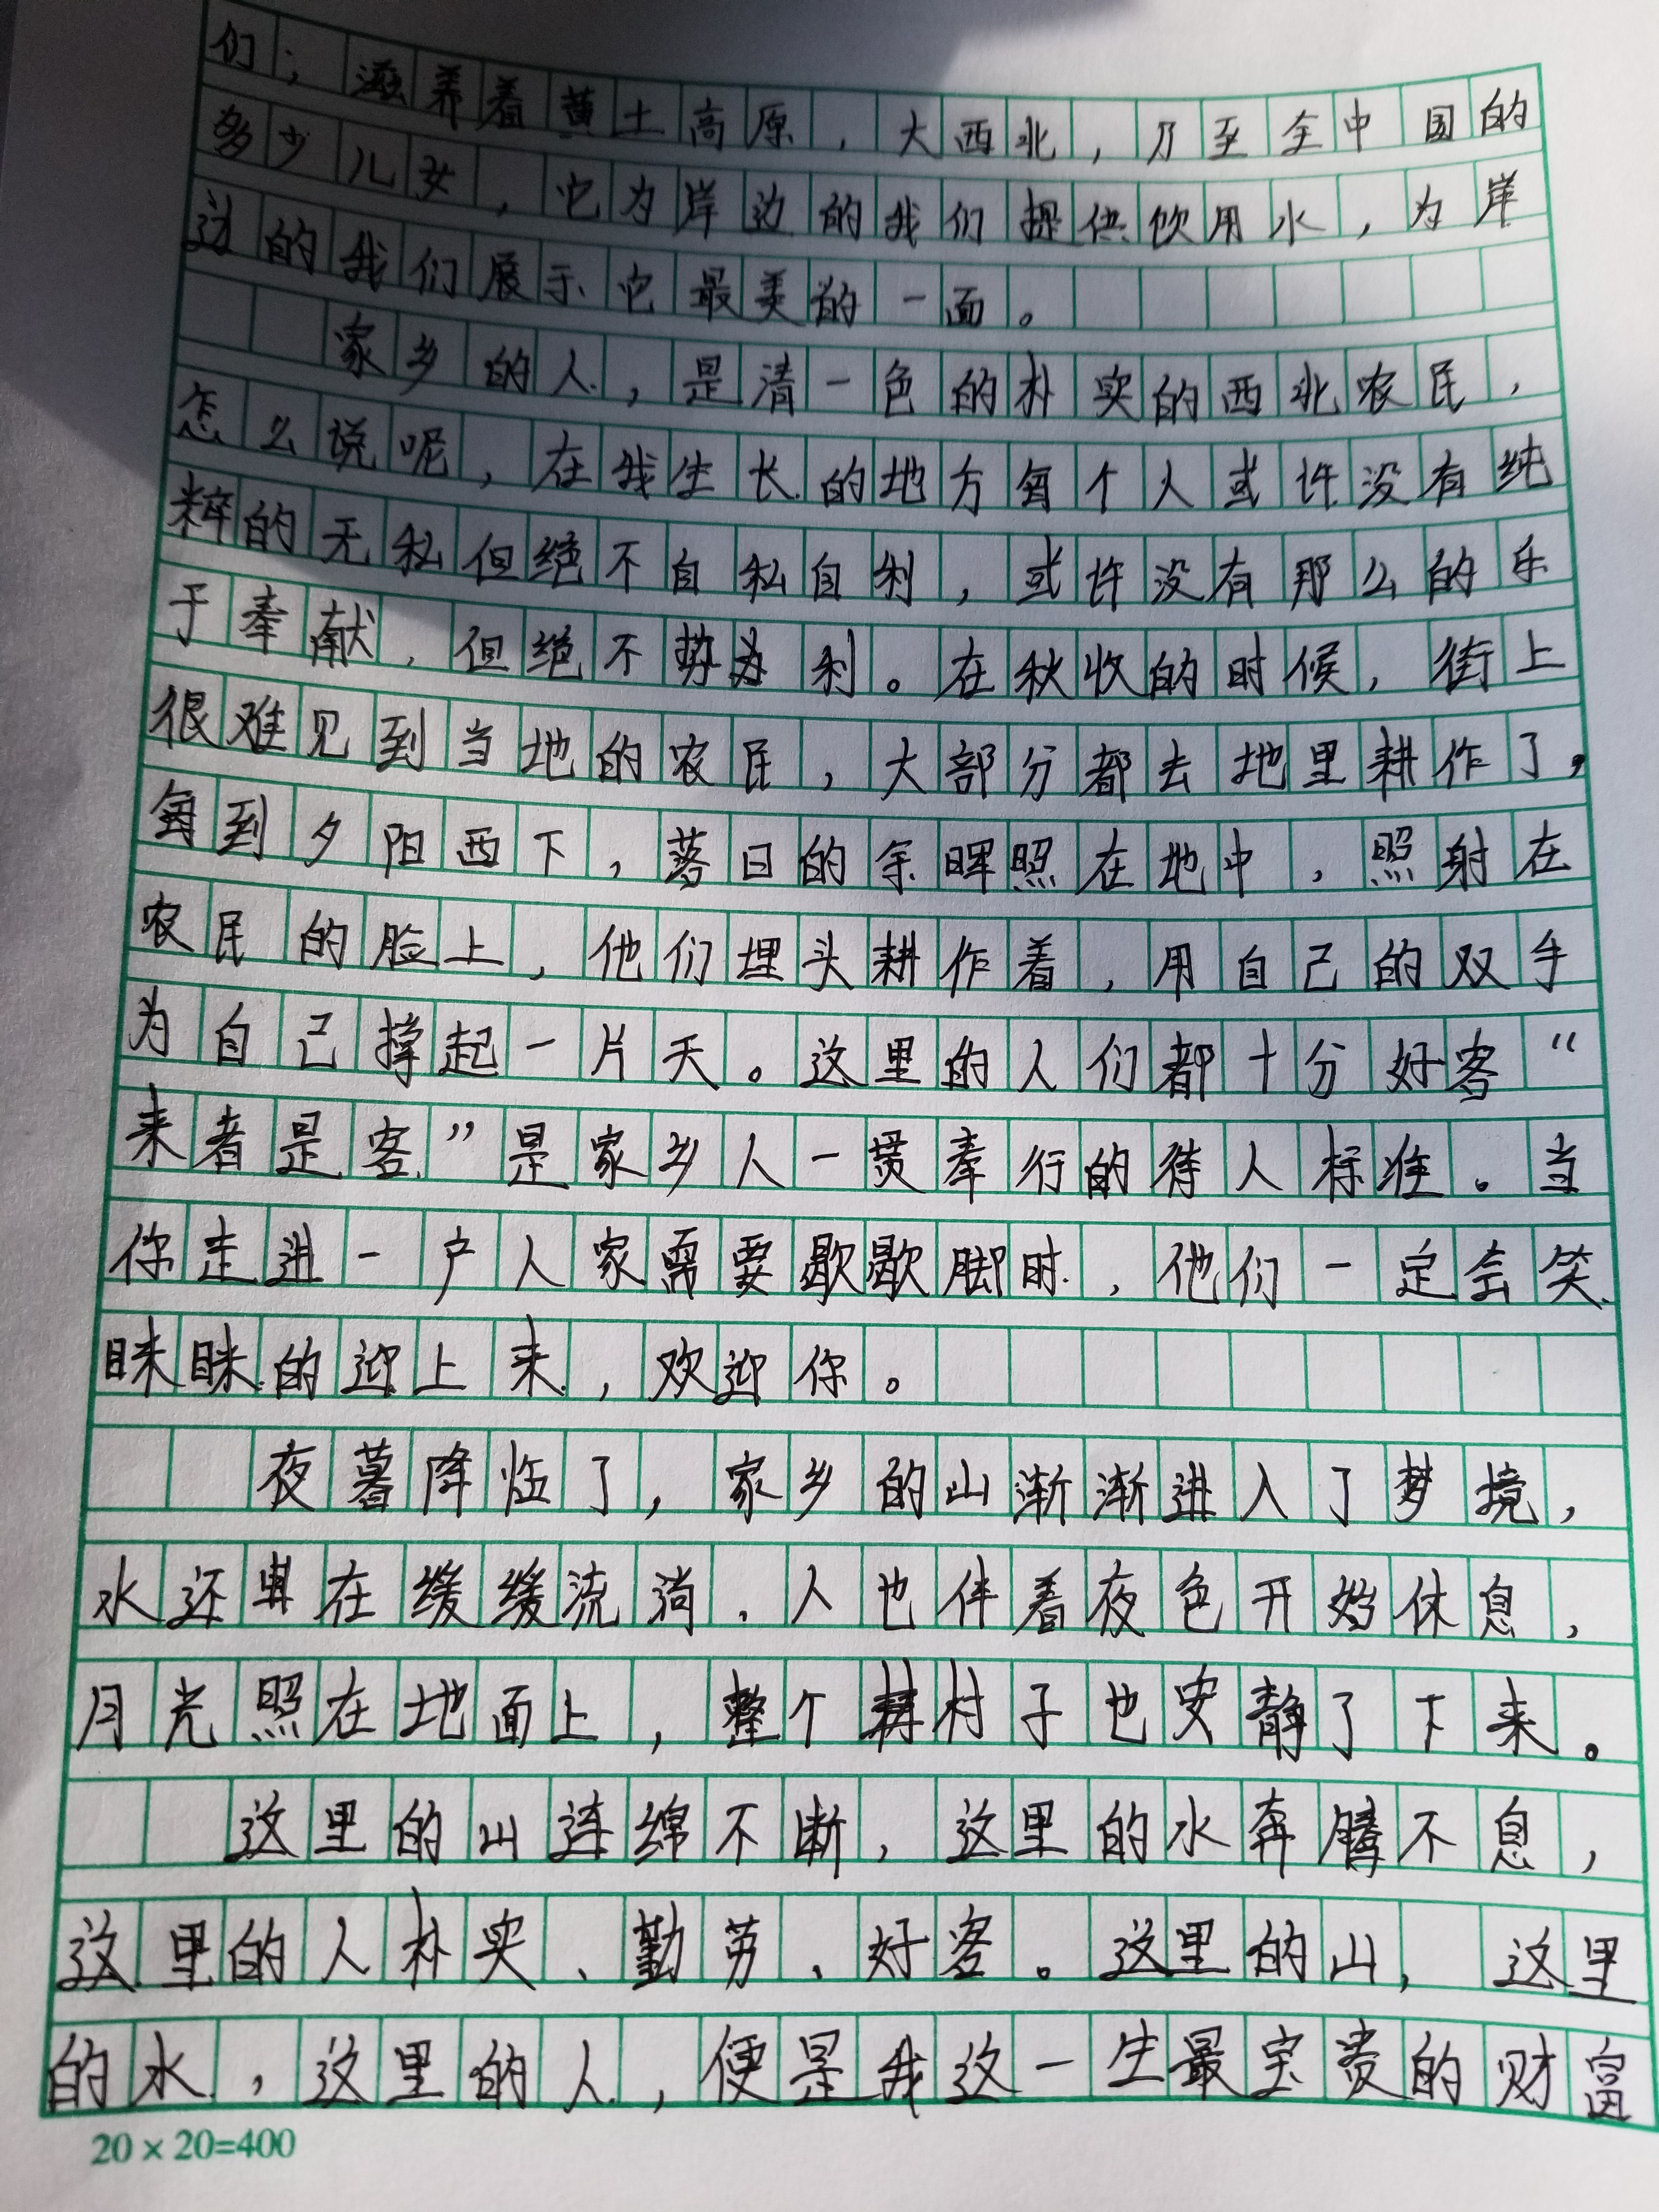 们；滋养着黄土高原，大西北，乃至全中国的
多少儿女，它为岸边的我们提供饮用水，为岸
边的我们展示它最美的一面。
家乡的人，是清一色的朴实的西北农民，
怎么说呢，在我生长的地方每个人或许没有纯
粹的无私但绝不自私自利，或许没有那么的乐
于奉献，但绝不势为利。在秋收的时候，街上
很难见到当地的农民，大部分都去地里耕作了，
每到夕阳西下，落日的余晖照在地中，照射在
农民的脸上，他们埋头耕作着，用自己的双手
为自己撑起一片天。这里的人们都十分好客“
来者是客”是家乡人一贯奉行的待人标准。当
你走进一户人家需要歇歇脚时，他们一定会笑
眯眯的迎上来，欢迎你。
夜暮降临了，家乡的山渐渐进入了梦境，
水还在缓缓流淌，人也伴着夜色开始休息，
月光照在地面上，整个村子也安静了下来。
这里的山连绵不断，这里的水奔腾不息，
这里的人朴实、勤劳、好客。这里的山，这里
的水，这里的人，便是我这一生最宝贵的财富
20×20=400